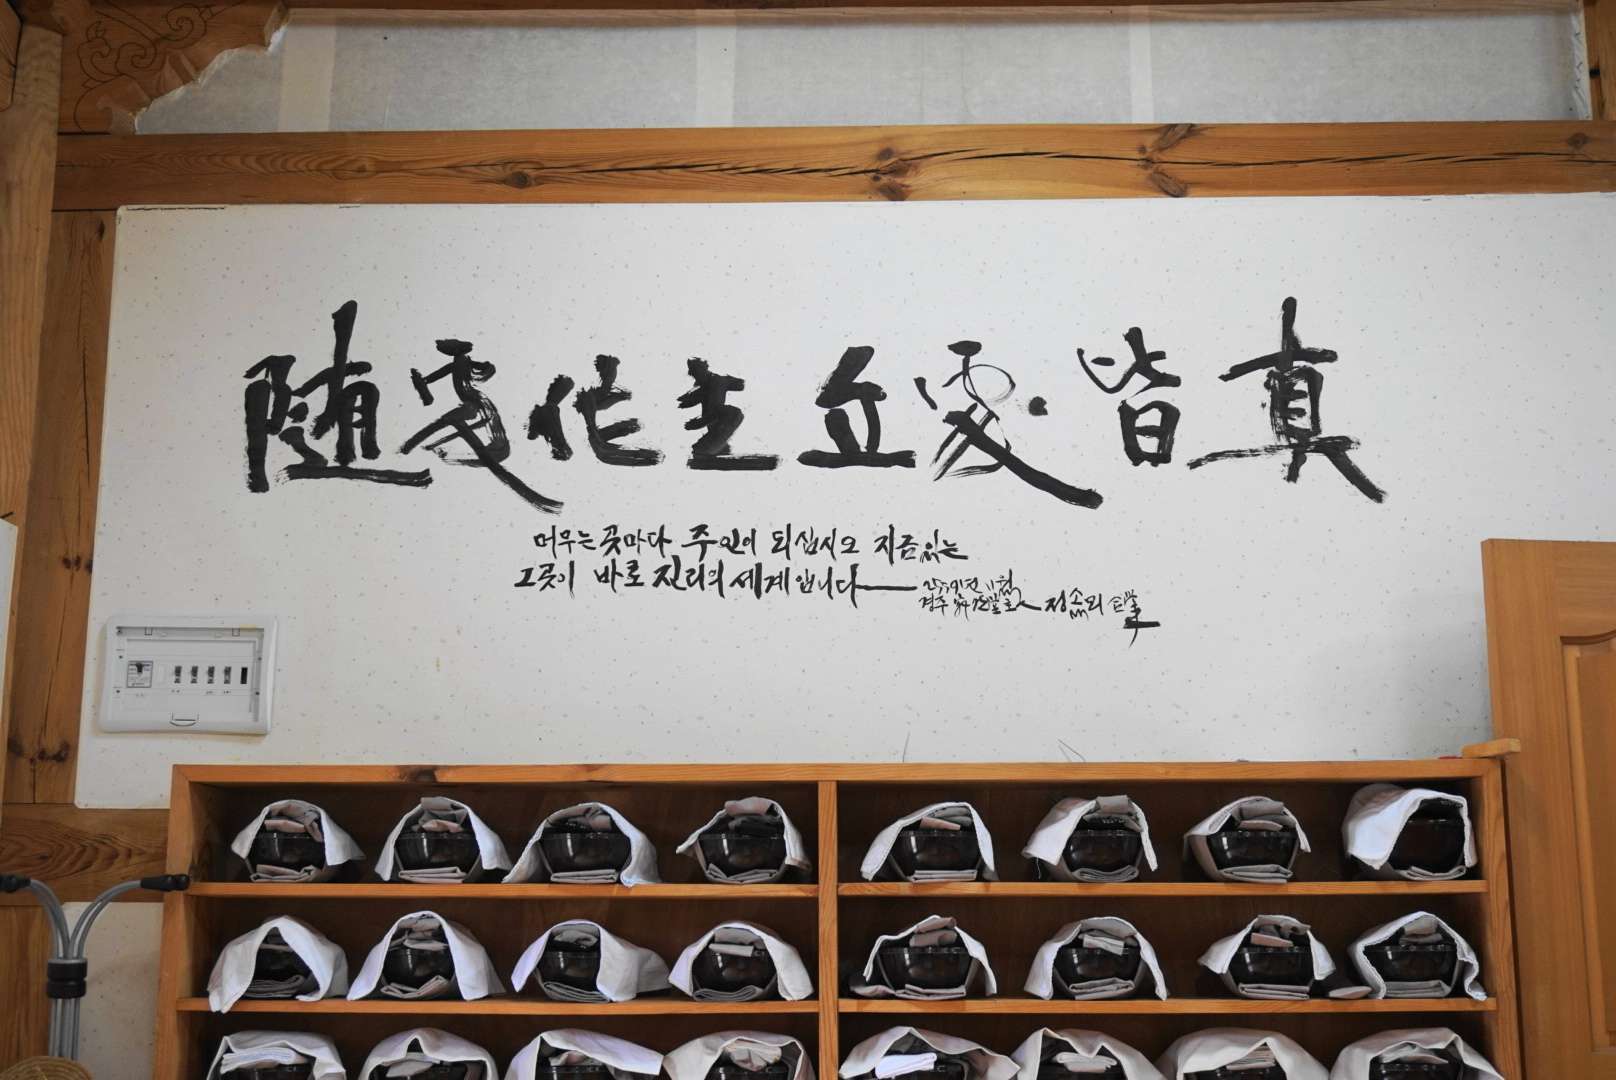 随處作主立處皆真
머무는 곳마다 주인이 되십시오 지금 있는
그곳이 바로 진리의 세계입니다